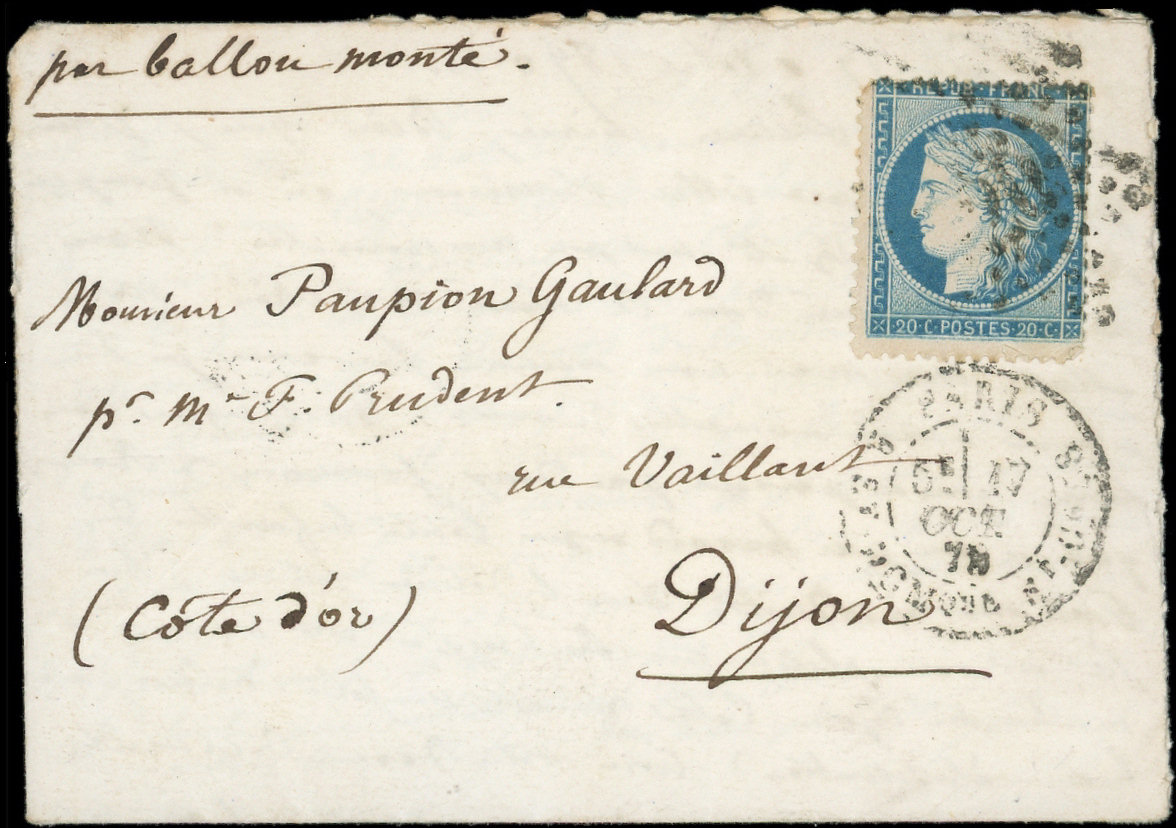 par ballon monté.
REPUB. FRANC.
20·C·POSTES·20·C·
Monsieur Paupion Gaulard
pr. Mr F. Prudent.
rue Vaillant
Dijon
(Côte d'or)
PARIS
17
OCT.